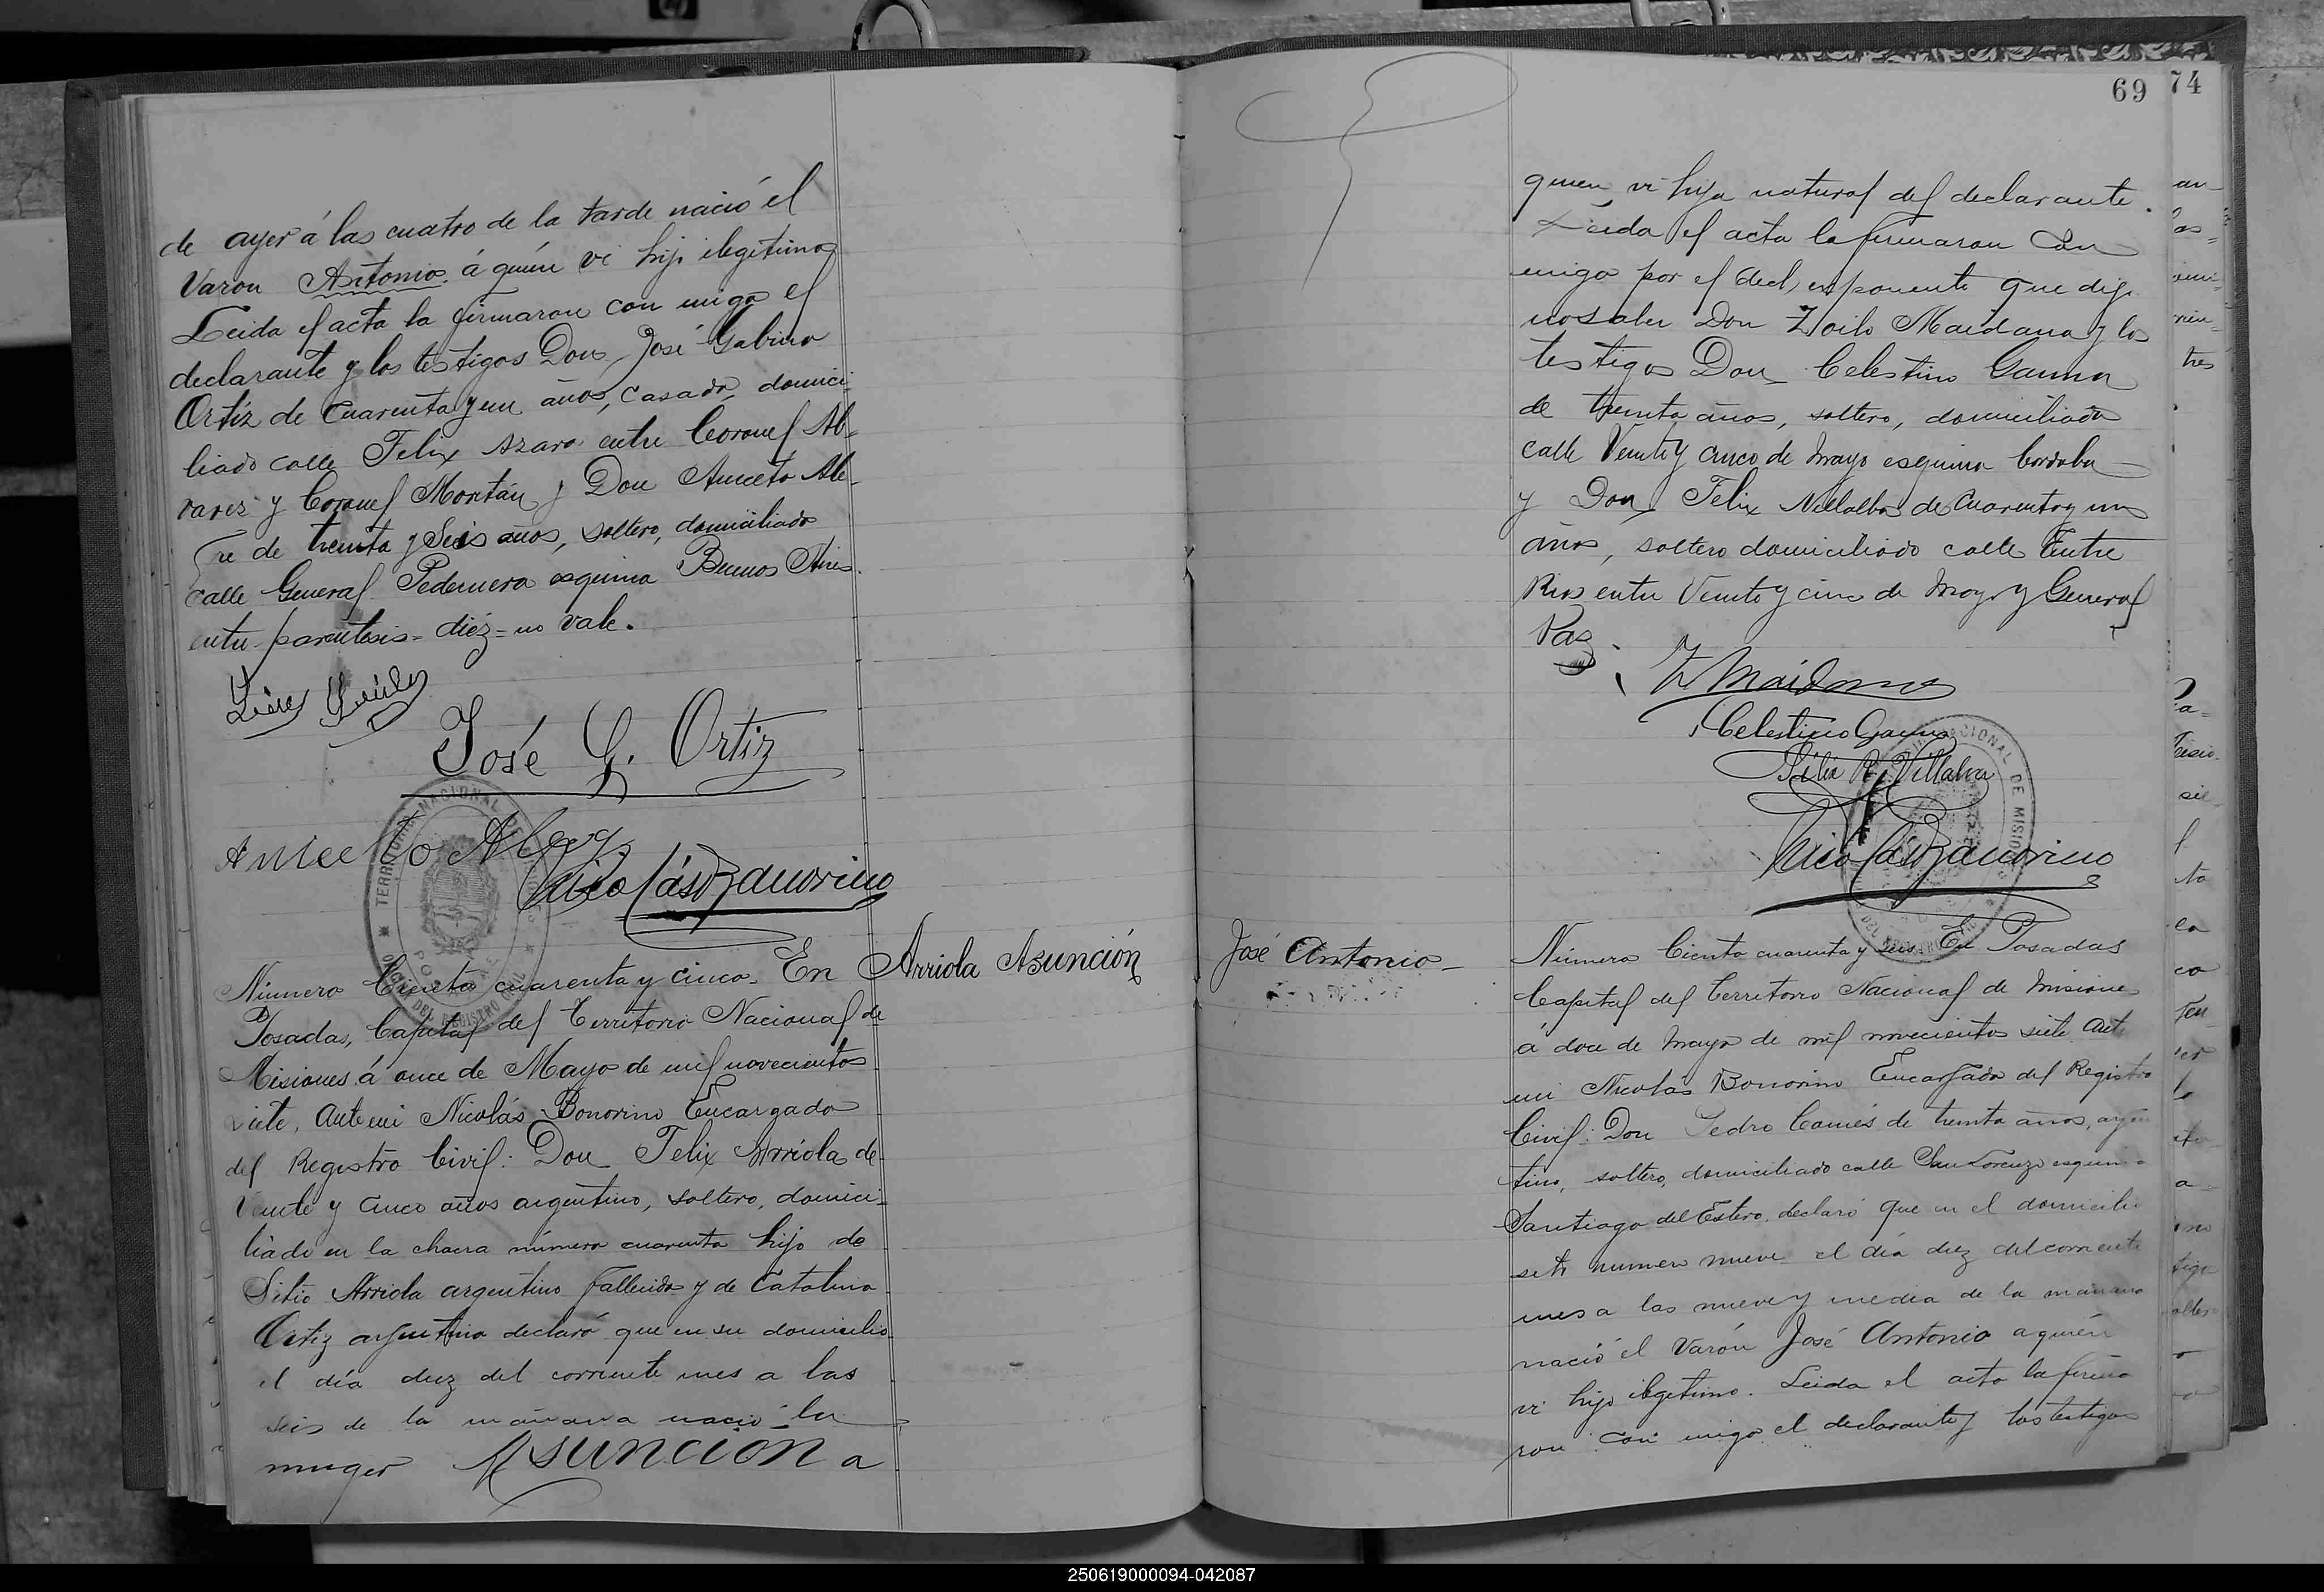 de ayer á las cuatro de la tarde nació el
Varon Antonio á quien vi hijo ilegitimo
Leida el acta la firmaron con migo el
declarante y los testigos Don José Gabino
Ortíz de Cuarenta y un años, casado, domici-
liado calle Felix Azara entre Coronel Al-
varez y Coronel Mortán y Don Aniceto Ale-
gre de treinta y Seis años, soltero, domiciliado
calle General Pedernera esquina Buenos Aires.
entre parentesis = diez = no vale.
José G. Ortiz
Aniceto Alegre
Nicolás Bonorino
TERRITORIO NACIONAL DE MISIONES
OFICINA DEL REGISTRO CIVIL
POSADAS
Número Ciento cuarenta y cinco. En
Arriola Asunción
Posadas, Capital del Territorio Nacional de
Misiones á once de Mayo de mil novecientos
siete, Ante mi Nicolás Bonorino Encargado
del Registro Civil: Don Felix Arriola de
Veinte y cinco años argentino, soltero, domici-
liado en la chacra número cuarenta hijo de
Sitio Arriola argentino fallecido y de Catalina
Ortiz argentina declaró que en su domicilio
el día diez del corriente mes a las
seis de la mañana nació la
muger Asunción a
69
74
quien vi hija natural del declarante.
Leida el acta la firmaron Con
migo por el (decl) esponente que dijo
no saber Don Zoilo Maidana y los
testigos Don Celestino Gauna
de treinta años, soltero, domiciliado
calle Veinte y cinco de Mayo esquina Cordoba
y Don Felix Villalba de cuarenta y un
años, soltero domiciliado calle Entre
Rios entre Veinte y cinco de Mayo y General
Paz.
Z Maidana
Celestino Gauna
Félix R. Villalva
Nicolás Bonorino
José Antonio
Número Ciento cuarenta y seis. En Posadas
Capital del Territorio Nacional de Misiones
á doce de Mayo de mil novecientos siete Ante
mi Nicolás Bonorino Encargado del Registro
Civil: Don Pedro Comés de treinta años, argen
tino, soltero, domiciliado calle San Lorenzo esquina
Santiago del Estero, declaró que en el domicilio
numero nueve el día diez del corriente
mes a las nueve y media de la mañana
nació el Varón José Antonio a quién
vi hijo ilegitimo. Leida el acta la firma
ron con migo el declarante y los testigos
250619000094-042087